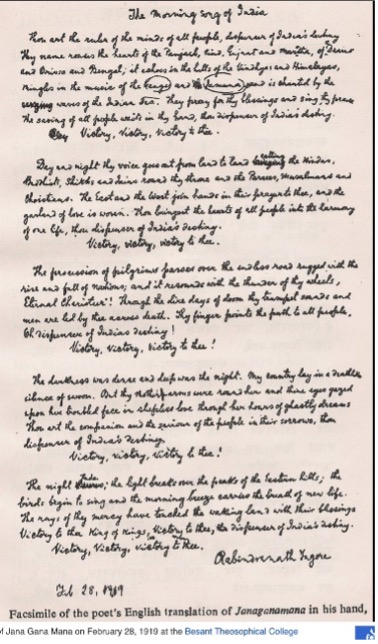 The Morning song of India
Thou art the ruler of the minds of all people, dispenser of India's destiny
Thy name rouses the hearts of the Punjab, Sind, Gujrat and Maratha, of Dravid
and Orissa and Bengal; it echoes in the hills of the Vindhyas and Himalayas,
mingles in the music of the and Jamuna and is chanted by the
waves of the Indian Sea. They pray for thy blessings and sing thy praise
The saving of all people waits in thy hand, thou dispenser of India's destiny.
Victory, Victory, Victory to thee.
Day and night thy voice goes out from land to land calling the Hindus,
Buddhists, Sikhs and Jains round thy throne and the Parsees, Musalmans and
Christians. The East and the West join hands in their prayer to thee, and the
garland of love is woven. Thou bringest the hearts of all people into the harmony
of one life, thou dispenser of India's destiny.
Victory, Victory, Victory to thee.
The procession of pilgrims passes over the endless road rugged with the
rise and fall of nations; and it resounds with the thunder of thy wheels,
Eternal Charioteer! Through the dire days of doom thy trumpet sounds and
men are led by thee across death. Thy finger points the path to all people,
Oh dispenser of India's destiny!
Victory, Victory, Victory to thee!
The darkness was dense and deep was the night. My country lay in a deathlike
silence of swoon. But thy mother arms were round her and thine eyes gazed
upon her troubled face in sleepless love through her hours of ghastly dreams
Thou art the companion and the saviour of the people in their sorrows, thou
dispenser of India's destiny.
Victory, Victory, Victory to thee!
The night fades; the light breaks over the peaks of the Eastern hills; the
birds begin to sing and the morning breeze carries the breath of new life.
The rays of thy mercy have touched the waking land with their blessings
Victory to thee King of Kings, Victory to thee, the dispenser of India's destiny.
Victory, Victory, Victory to thee.
Rabindranath Tagore
Feb 28, 1919
Facsimile of the poet's English translation of Janaganamana in his hand,
of Jana Gana Mana on February 28, 1919 at the Besant Theosophical College